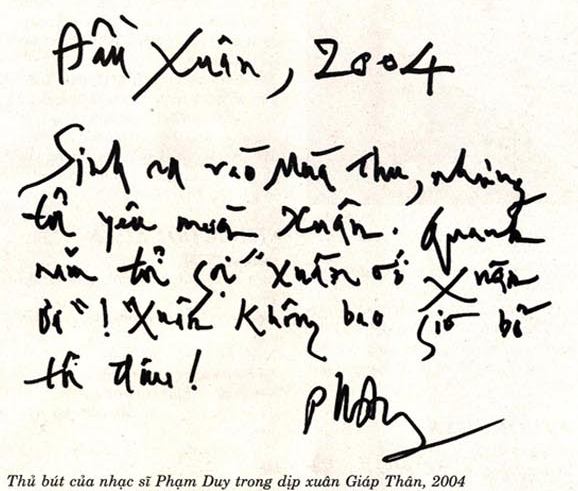 Đầu Xuân, 2004
Sinh ra vào Mùa Thu, nhưng
tôi yêu mùa Xuân. Quanh
năm tôi gọi "Xuân ơi Xuân
ơi"! Xuân không bao giờ bỏ
tôi đâu!
PhDuy
Thủ bút của nhạc sĩ Phạm Duy trong dịp xuân Giáp Thân, 2004